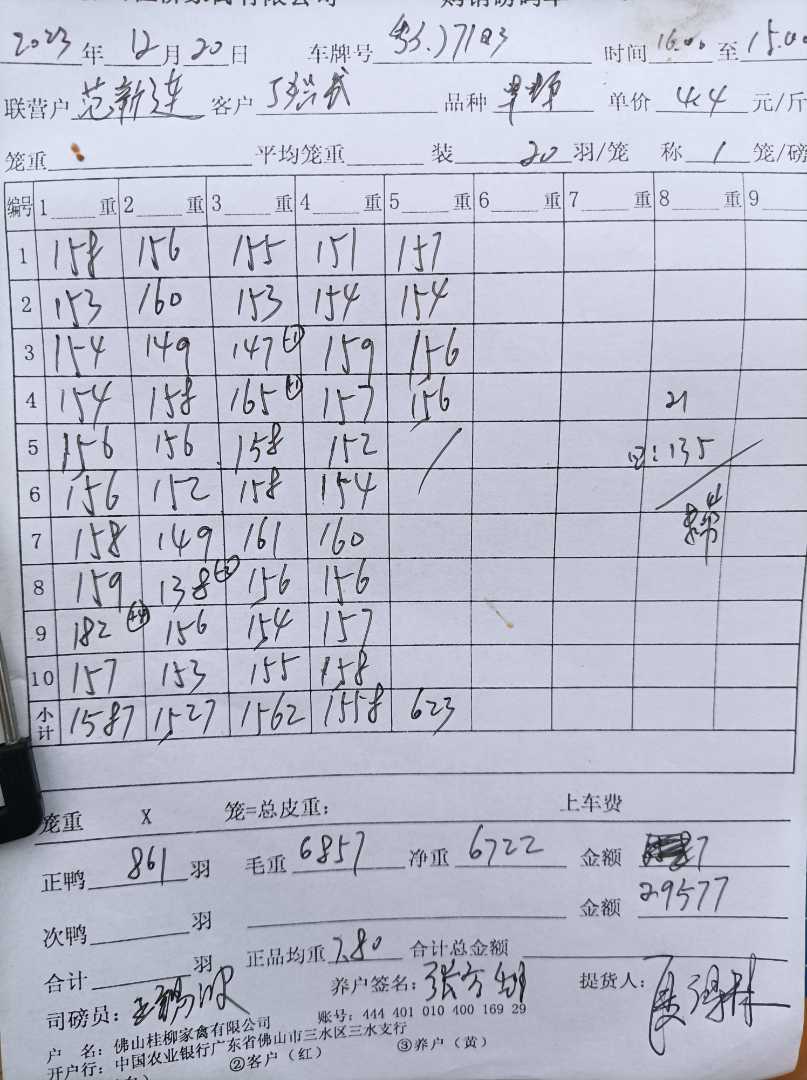 2023 年 12 月 20 日 车牌号 时间 16.00 至 15.00
联营户 范新连 客户 品种 单价 4.4 元/斤
笼重 平均笼重 装 20 羽/笼 称 1 笼/磅
编号 1 重 2 重 3 重 4 重 5 重 6 重 7 重 8 重 9
1 158 156 155 151 157
2 153 160 153 154 154
3 154 149 147 (-1) 159 156
4 154 158 165 (+1) 157 156 21
5 156 156 158 152 / 135
6 156 152 158 154
7 158 149 161 160
8 159 138 (-2) 156 156
9 182 (+4) 156 154 157
10 157 153 155 158
小计 1587 1527 1562 1558 623
笼重 X 笼=总皮重: 上车费
正鸭 861 羽 毛重 6857 净重 6722 金额
次鸭 羽 金额 29577
合计 羽 正品均重 7.80 合计总金额
司磅员: 养户签名: 提货人:
户 名: 佛山桂柳家禽有限公司 账号: 444 401 010 400 169 29
开户行: 中国农业银行广东省佛山市三水区三水支行
②客户(红) ③养户(黄)